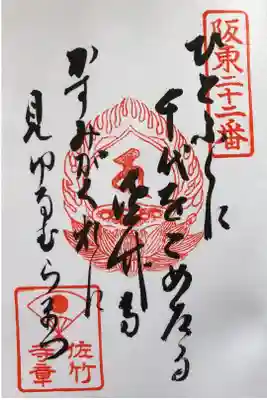 阪東二十二番
ひとふしに
千代をこめたる
佐竹寺
かすみがくれに
見ゆるむらまつ
佐竹
寺章